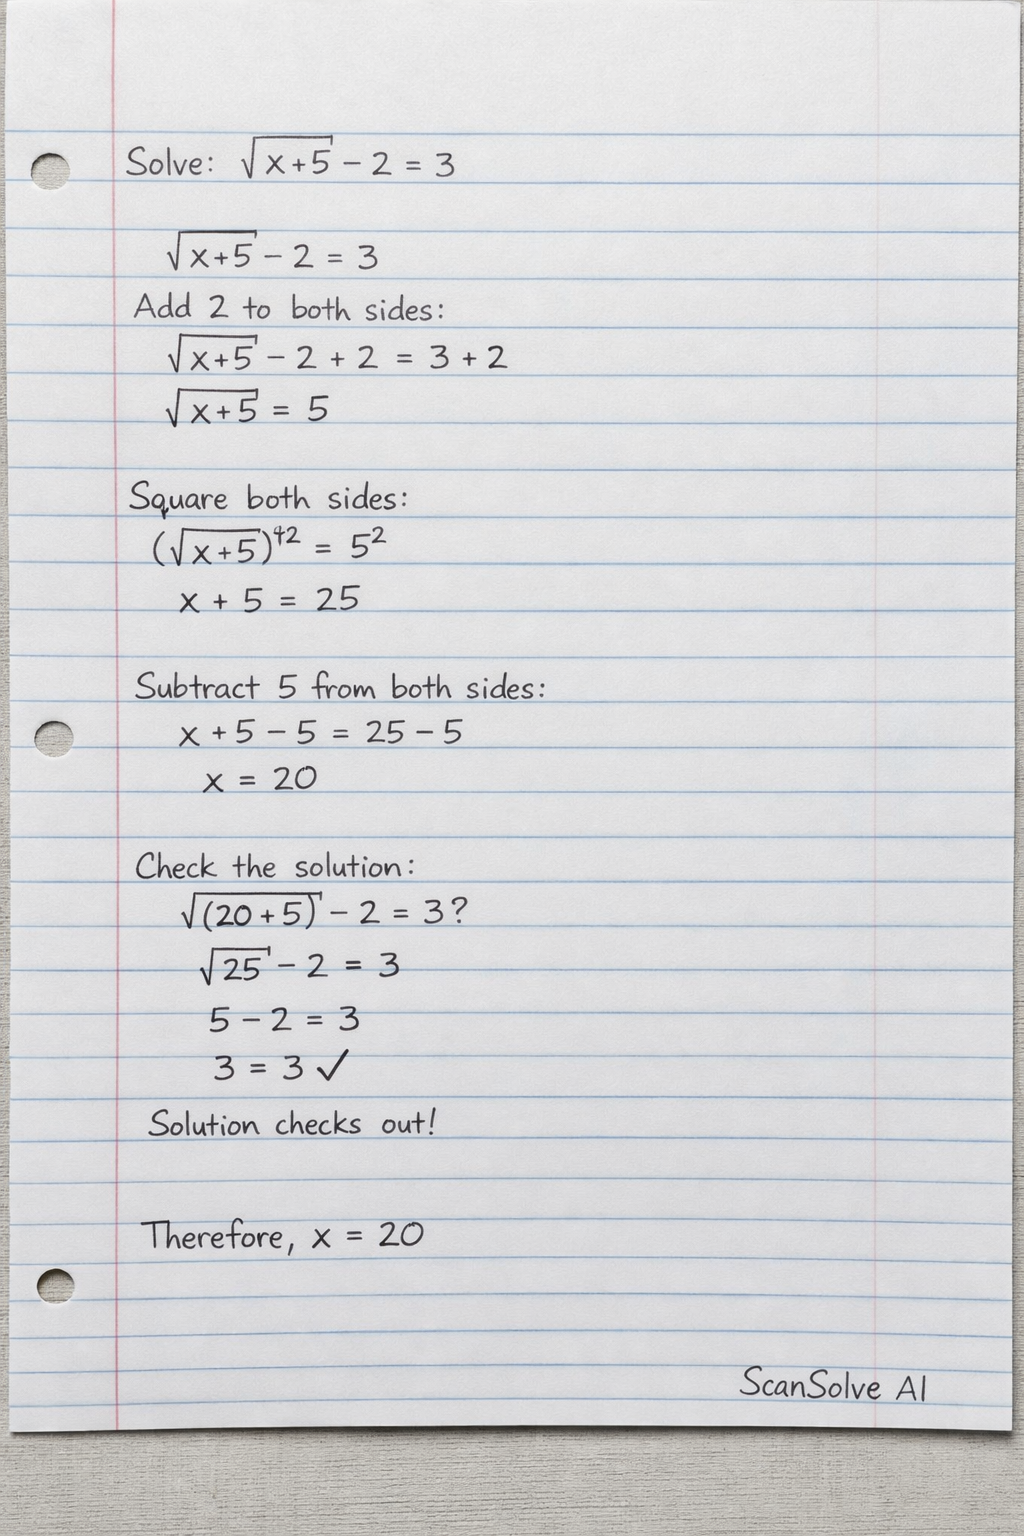 Solve: √(x+5) - 2 = 3
√(x+5) - 2 = 3
Add 2 to both sides:
√(x+5) - 2 + 2 = 3 + 2
√(x+5) = 5
Square both sides:
(√(x+5))⁴² = 5²
x + 5 = 25
Subtract 5 from both sides:
x + 5 - 5 = 25 - 5
x = 20
Check the solution:
√(20+5) - 2 = 3?
√25 - 2 = 3
5 - 2 = 3
3 = 3 ✓
Solution checks out!
Therefore, x = 20
ScanSolve AI